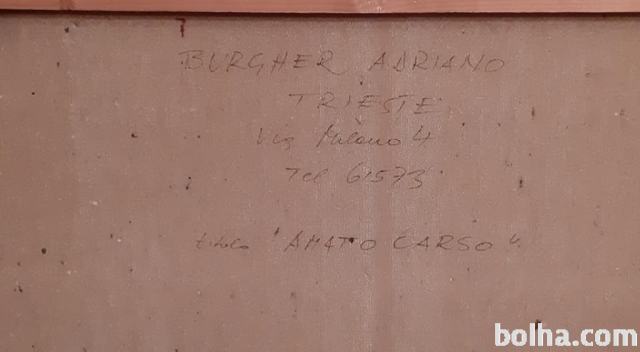 BURGHER ADRIANO
TRIESTE
Via Milano 4
Tel 61573
titolo "AMATO CARSO"
bolha.com